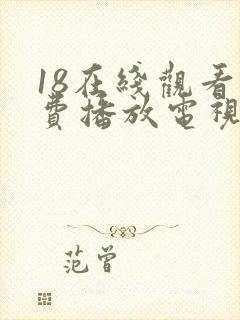 18在綫觀看
費播放電視
范曾